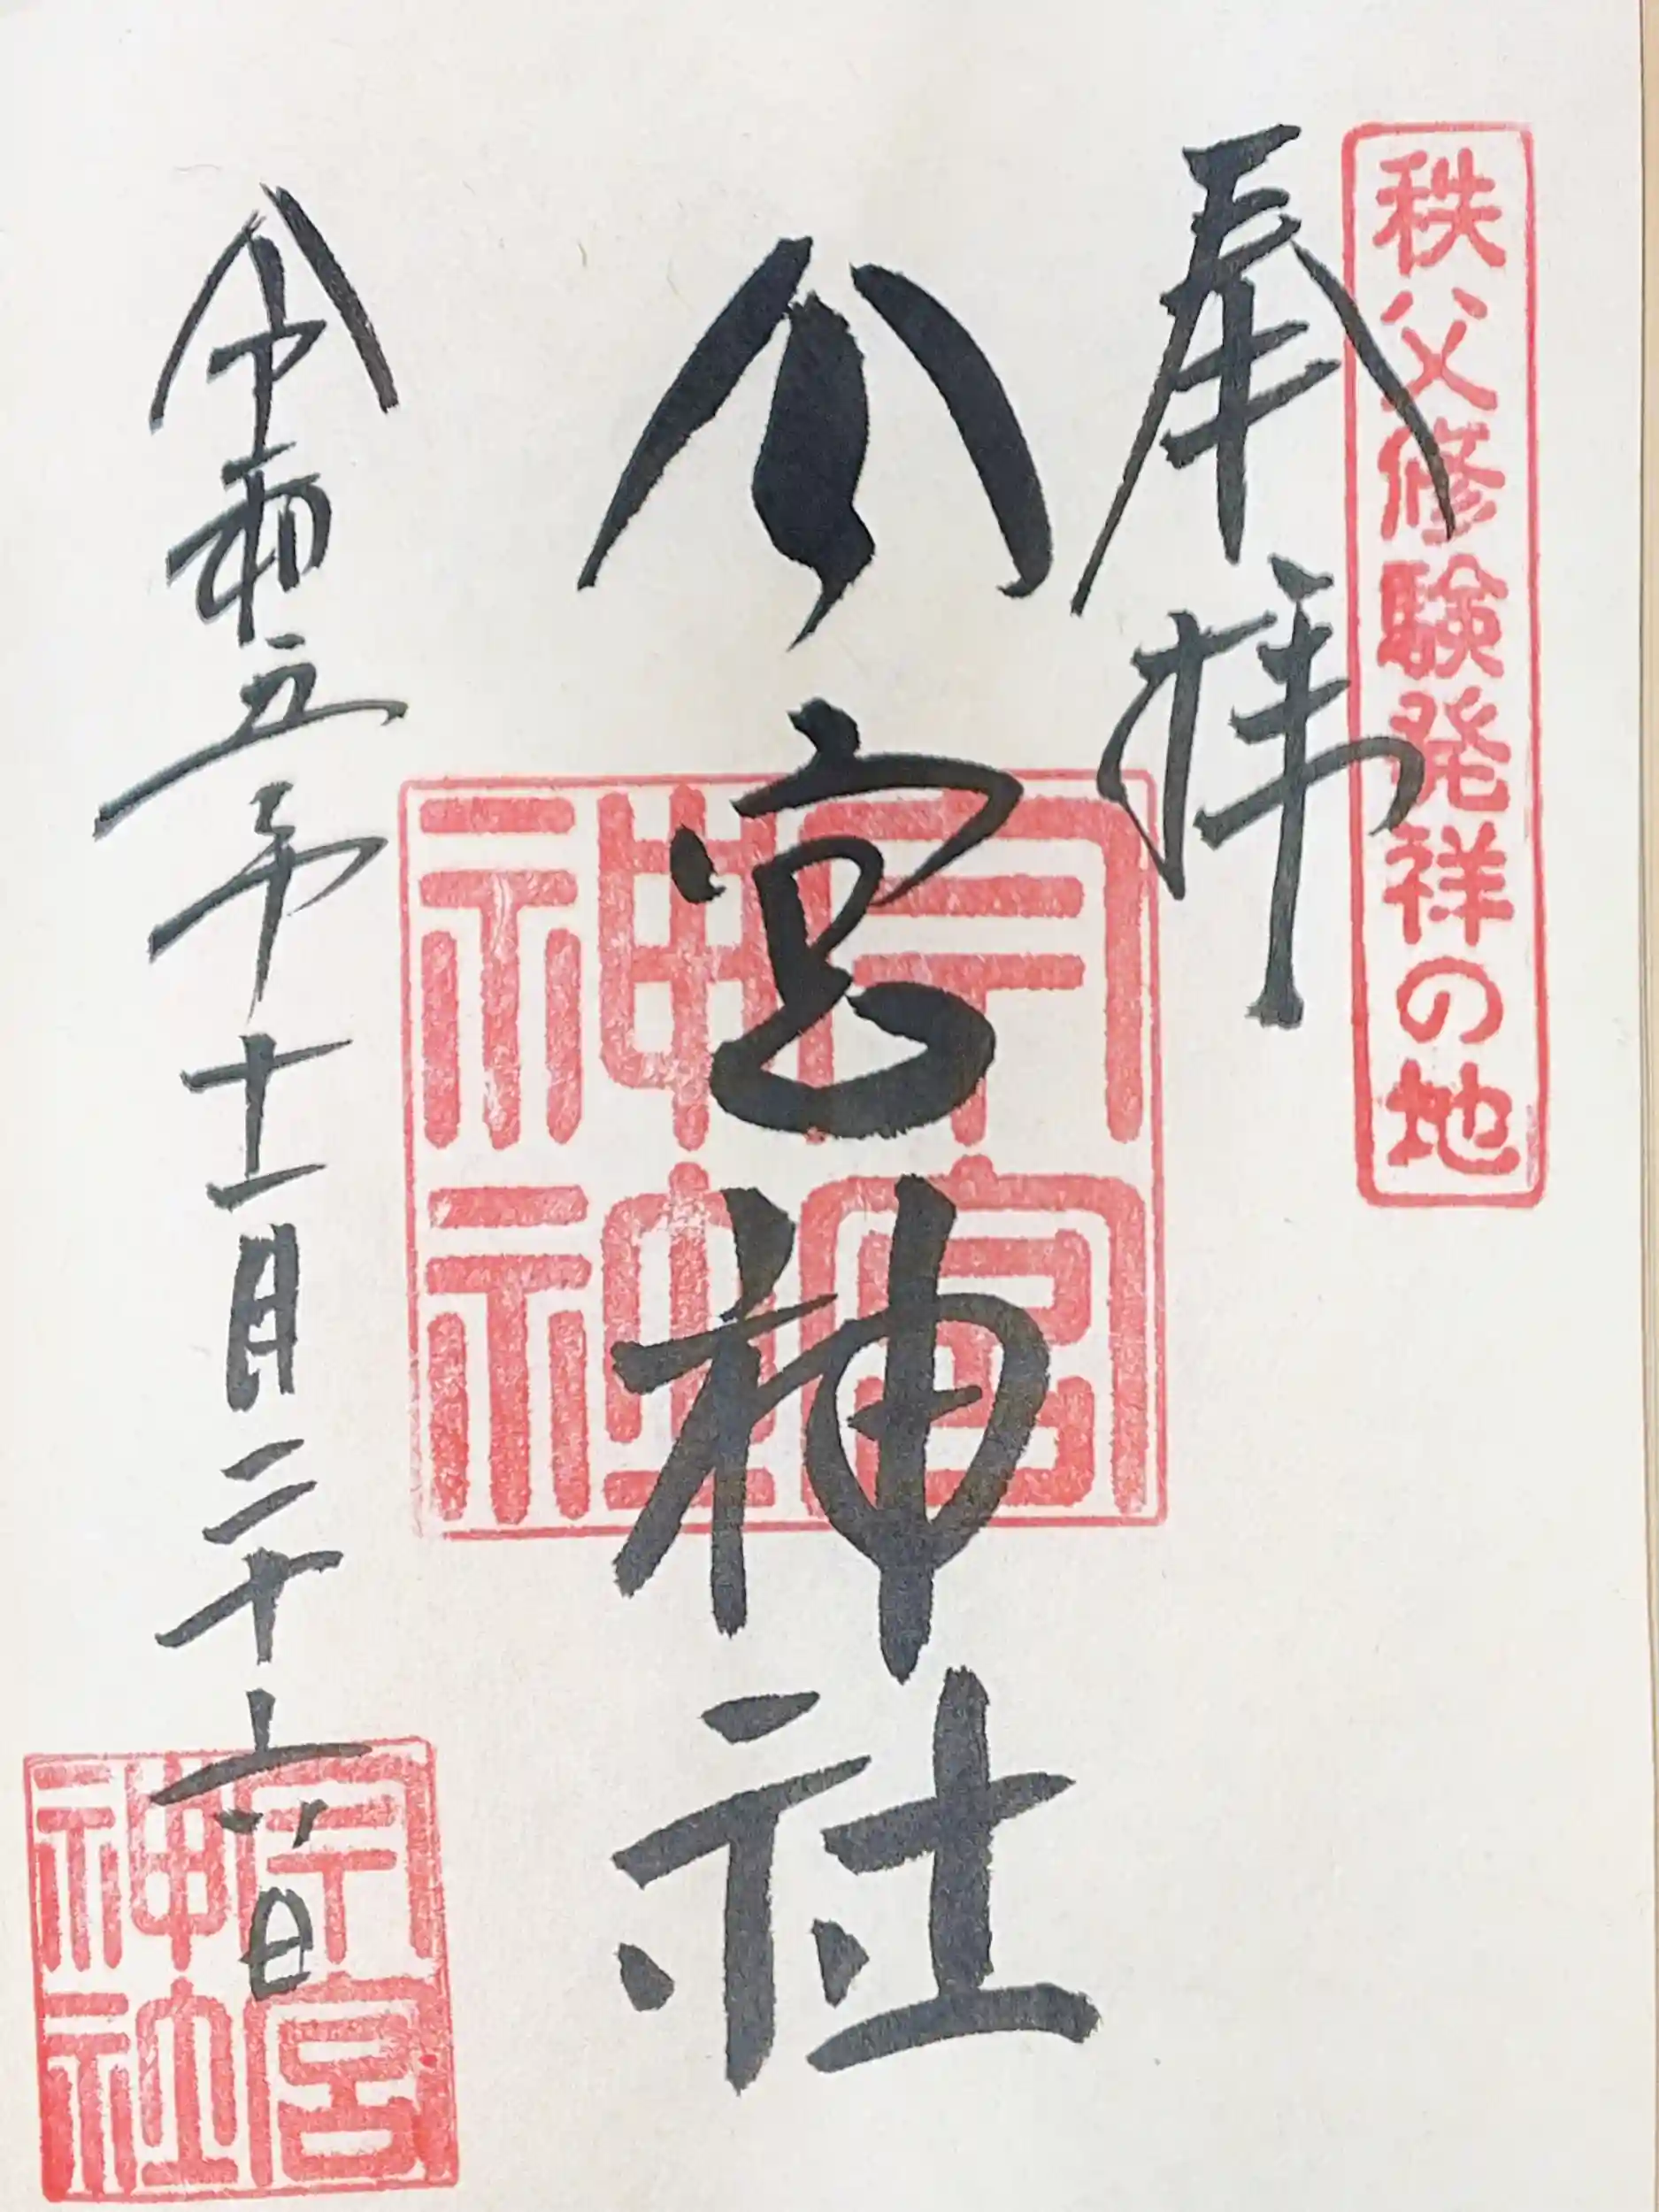 秩父修験発祥の地
奉拝
今宮神社
今宮
神社
令和五年十一月二十六日
今宮
神社